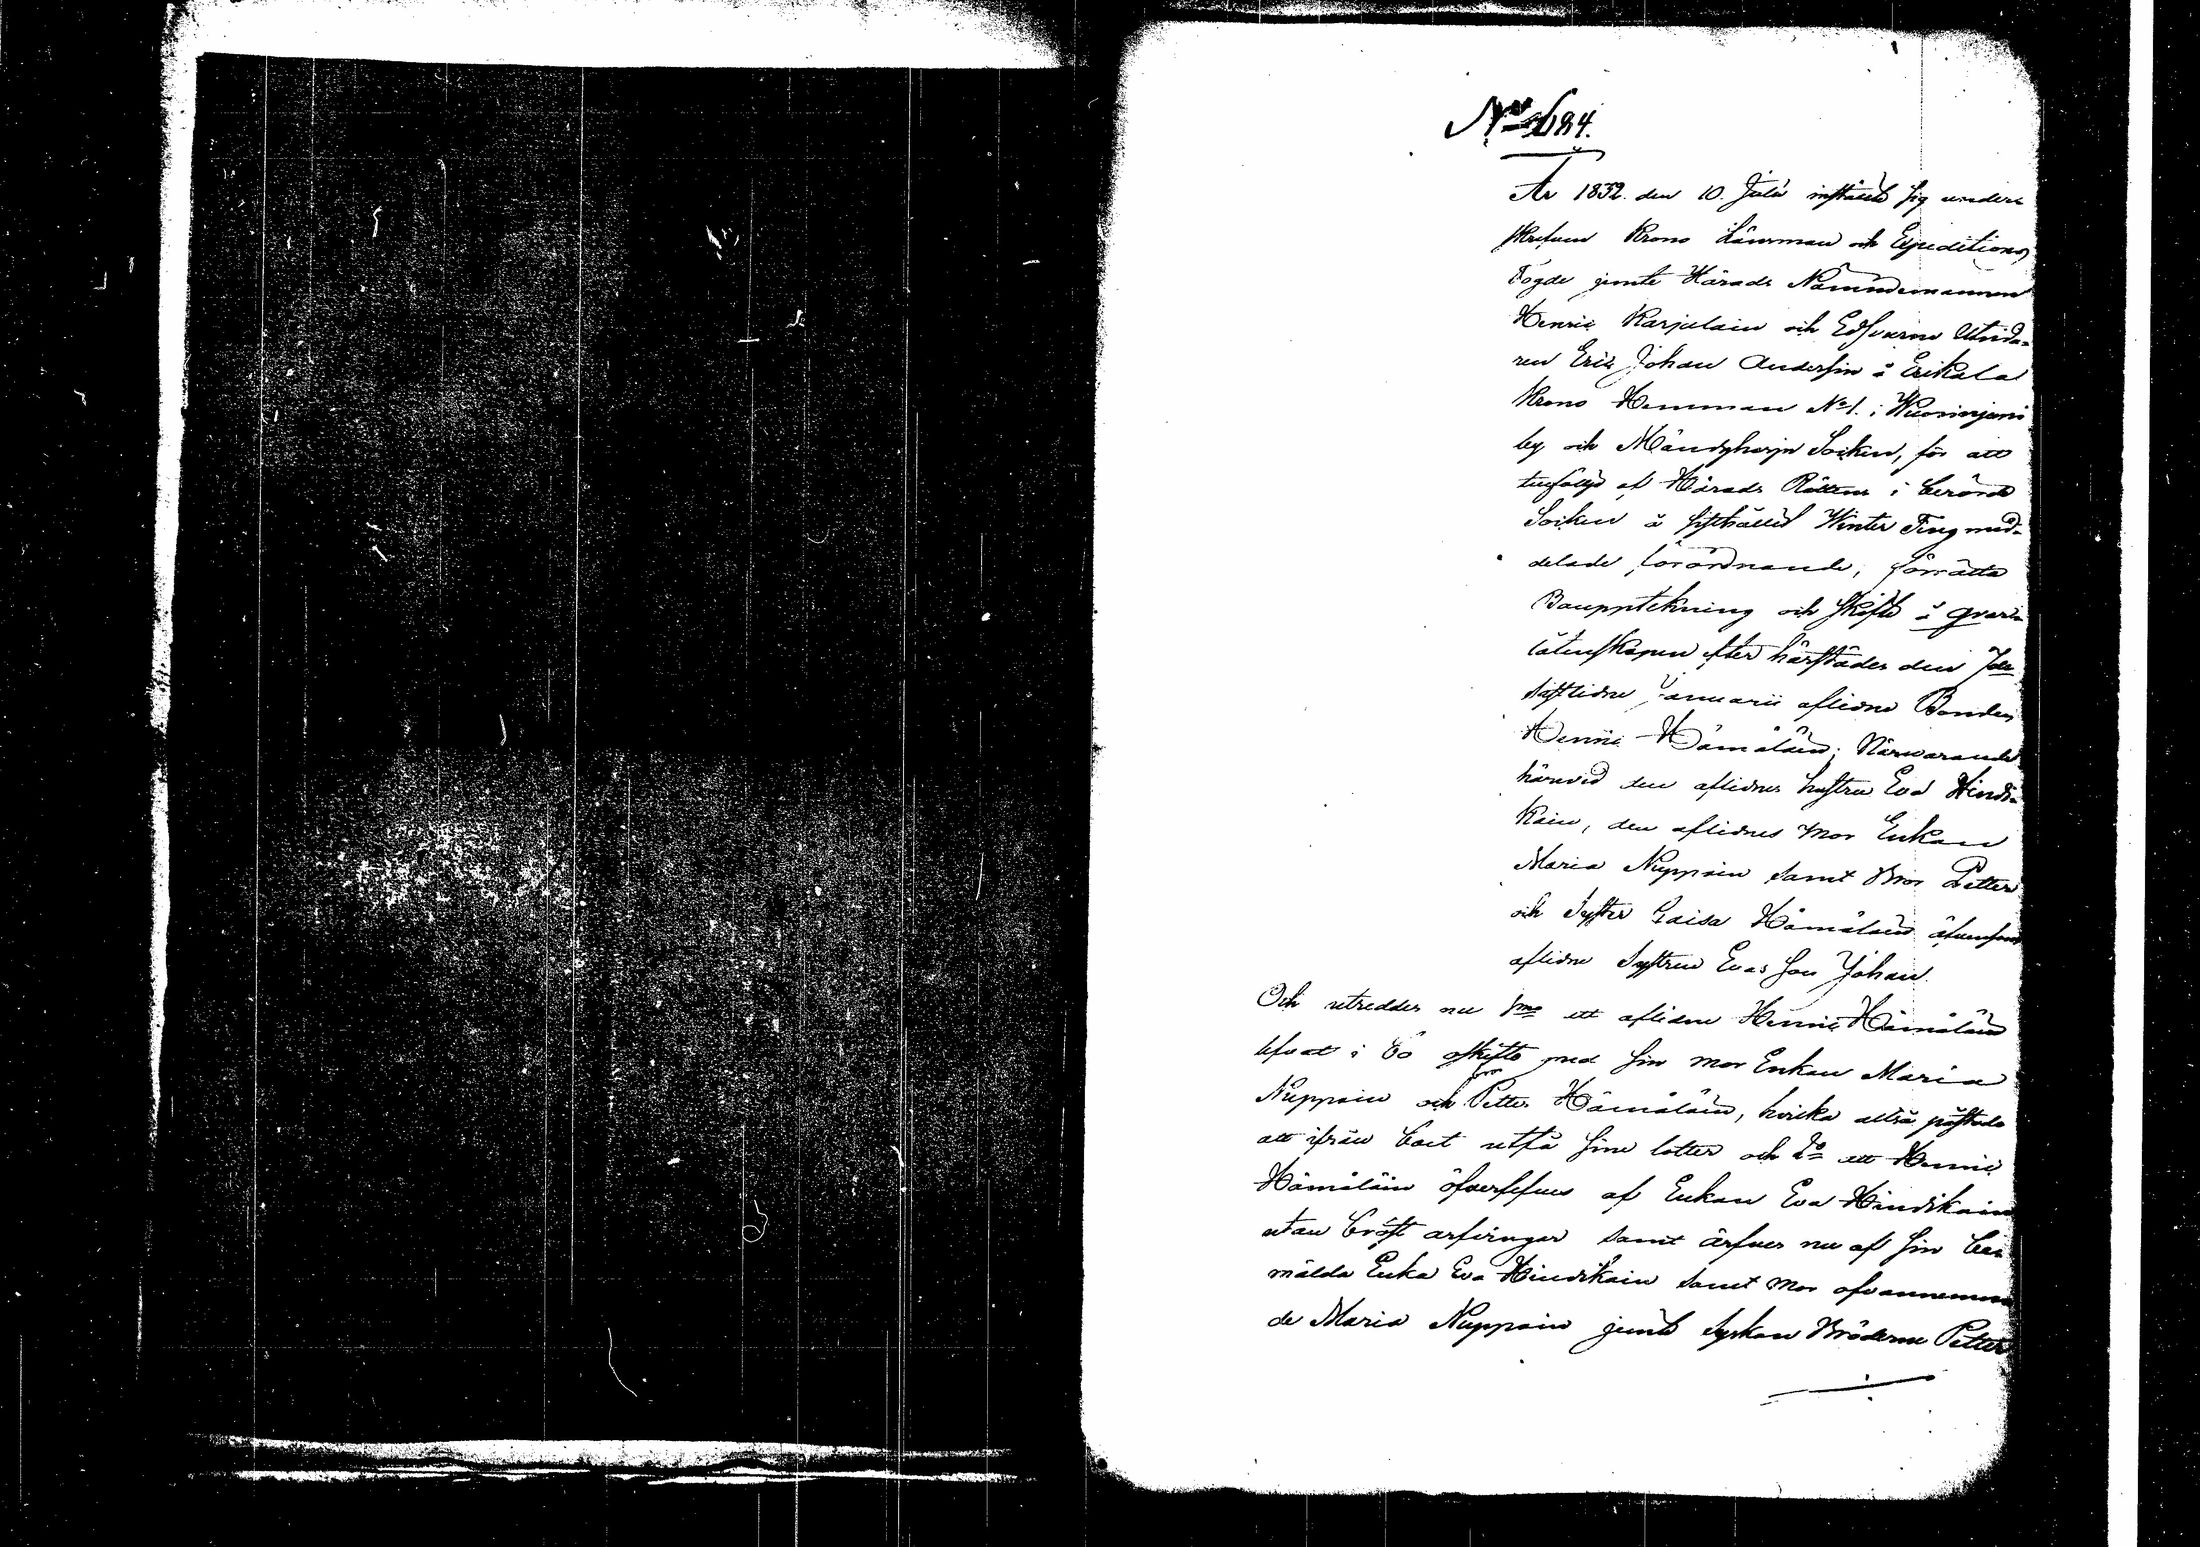 No 684.
År 1832. den 10. Julii instälde sig under
skrefven Krono Länsman och Expeditions
Fogde jemte Härads Nämndemannen
Henric Karjalain och Edsvurne 
ren Eric Johan Andersin å Erikala
Krono Hemman No 1. i Kuorinjemi
by och Mäntyharju Socken, för att
tillfölje af Härads Rättens i berörde
Socken å sisthållit Winter Ting med-
delade förordnande, förrätta
Bouppteckning och skifte å qvar-
låtenskapen efter härstädes den
sistlidne Januarii aflidne Bonden
Henric Hämäläin; Närwarande
härvid den aflidnes hustru Eva Hindi-
kain, den aflidnes Mor Enkan
Maria Nuppoin samt Bror Petter
och Syster Caisa Hämäläin äfvensom
aflidne Systren Evas Son Johan.
Och utreddes nu 1mo att aflidne Henric Hämäläin
lefvat i bo oskifto med sin mor Enkan Maria
Nuppoin och bror Petter Hämäläin, hvilka altså påstodo
att ifrån boet utfå sine lotter och 2o att Henric
Hämäläin öfverlefves af Enkan Eva Hindikain
utan bröst arfvingar samt ärfves nu af sin be-
mälda Enka Eva Hindikain samt Mor ofvannemn-
de Maria Nuppoin jemte Syskon Bröderne Petter